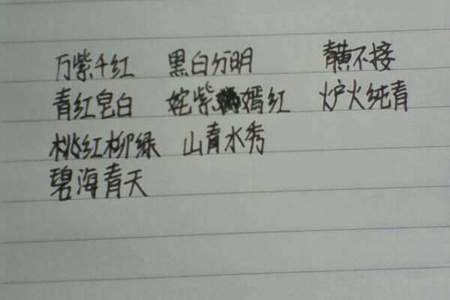 万紫千红 黑白分明 青黄不接
青红皂白 姹紫嫣红 炉火纯青
桃红柳绿 山青水秀
碧海青天